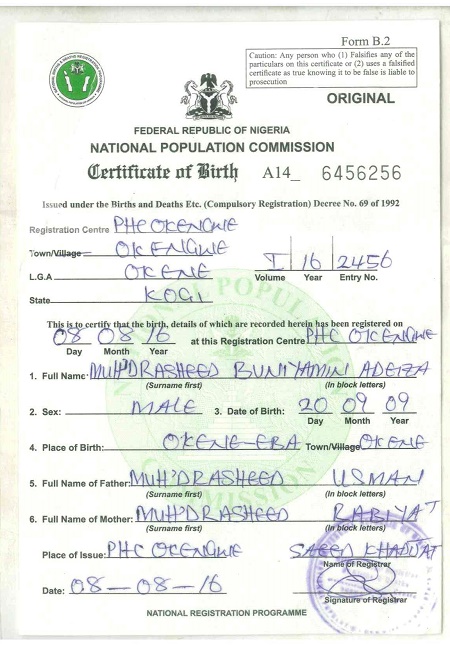 Form B.2
Caution: Any person who (1) Falsifies any of the
particulars on this certificate or (2) uses a falsified
certificate as true knowing it to be false is liable to
prosecution
ORIGINAL
FEDERAL REPUBLIC OF NIGERIA
NATIONAL POPULATION COMMISSION
Certificate of Birth A14_ 6456256
Issued under the Births and Deaths Etc. (Compulsory Registration) Decree No. 69 of 1992
Registration Centre PHC OKENGWE
Town/Village OKENGWE
L.G.A OKENE I 16 2456
Volume Year Entry No.
State KOGI
This is to certify that the birth, details of which are recorded herein has been registered on
08 08 16 at this Registration Centre PHC OKENGWE
Day Month Year
1. Full Name: MUH'DRASHEED BUNIYAMIN ADEIZA
(Surname first) (In block letters)
2. Sex: MALE 3. Date of Birth: 20 09 09
Day Month Year
4. Place of Birth: OKENE-EBA Town/Village OKENE
5. Full Name of Father: MUH'DRASHEED USMAN
(Surname first) (In block letters)
6. Full Name of Mother: MUH'DRASHEED RABIYAT
(Surname first) (In block letters)
Place of Issue: PHC OKENGWE SAEED KHADIJAT
Name of Registrar
Date: 08-08-16
Signature of Registrar
NATIONAL REGISTRATION PROGRAMME